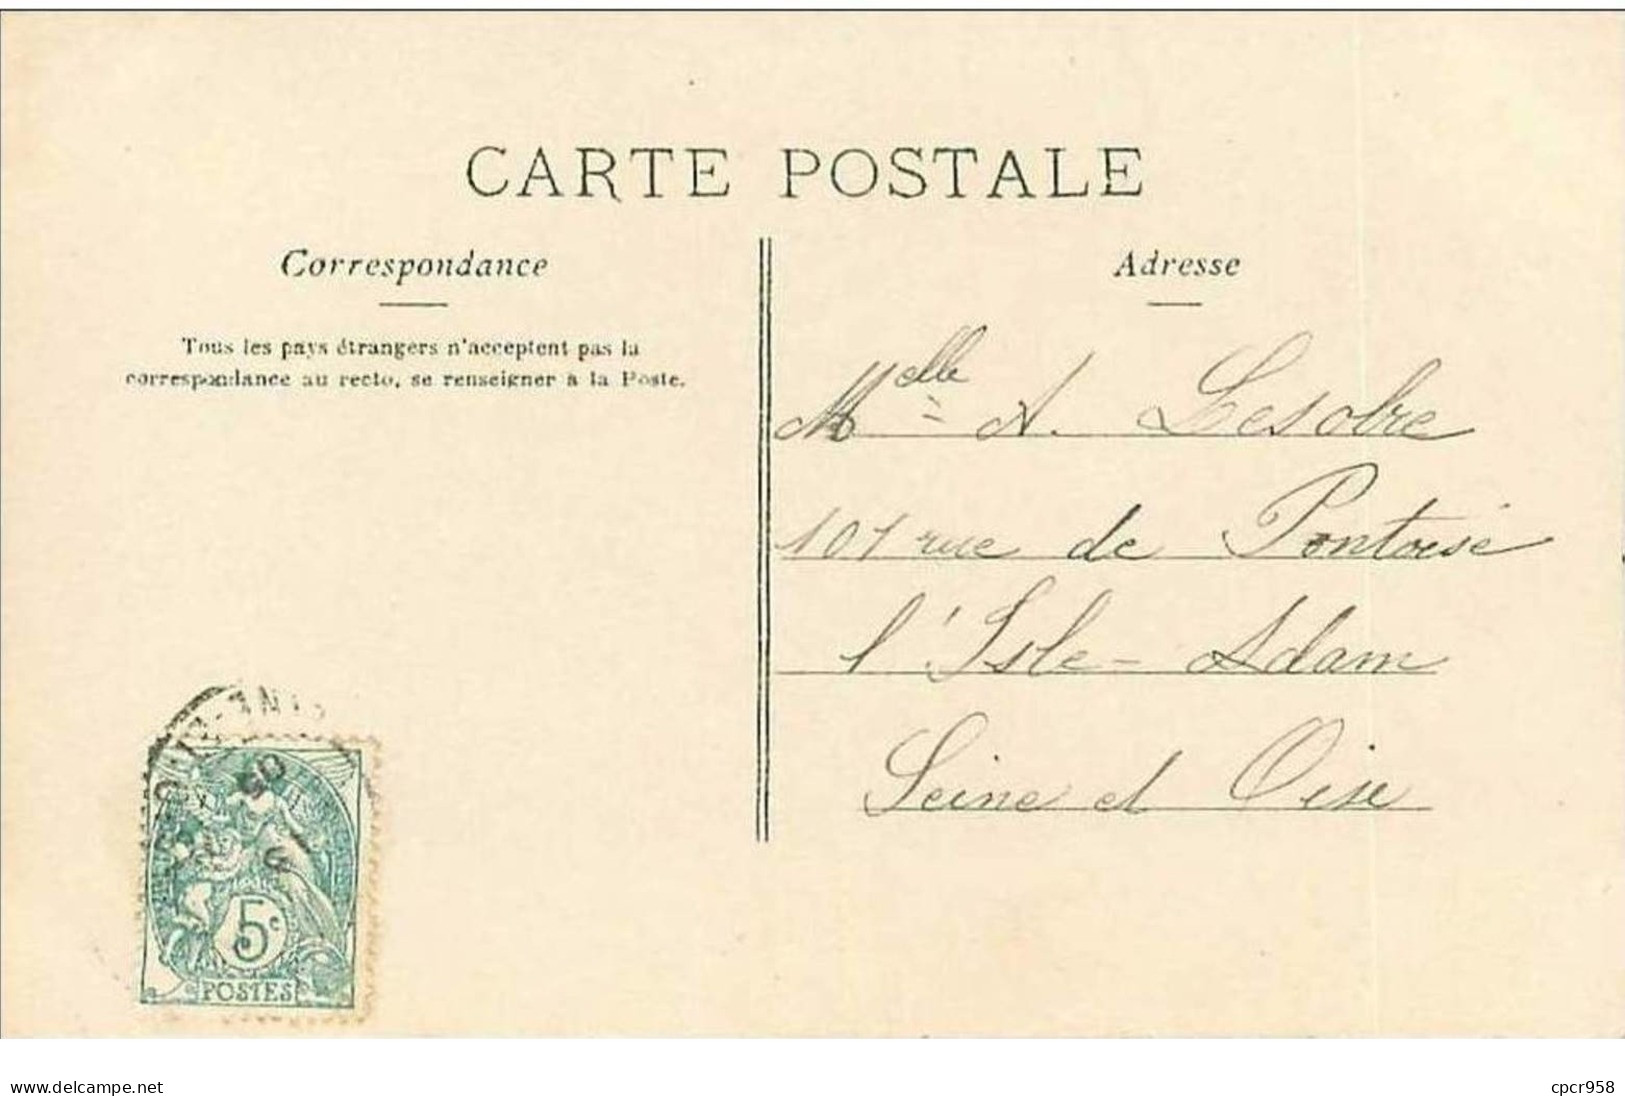 CARTE POSTALE
Correspondance
Tous les pays étrangers n'acceptent pas la
correspondance au recto, se renseigner à la Poste.
Adresse
Melle A. Lesobre
101 rue de Pontoise
l'Isle-Adam
Seine et Oise
05
5c
POSTES
www.delcampe.net
cpcr958